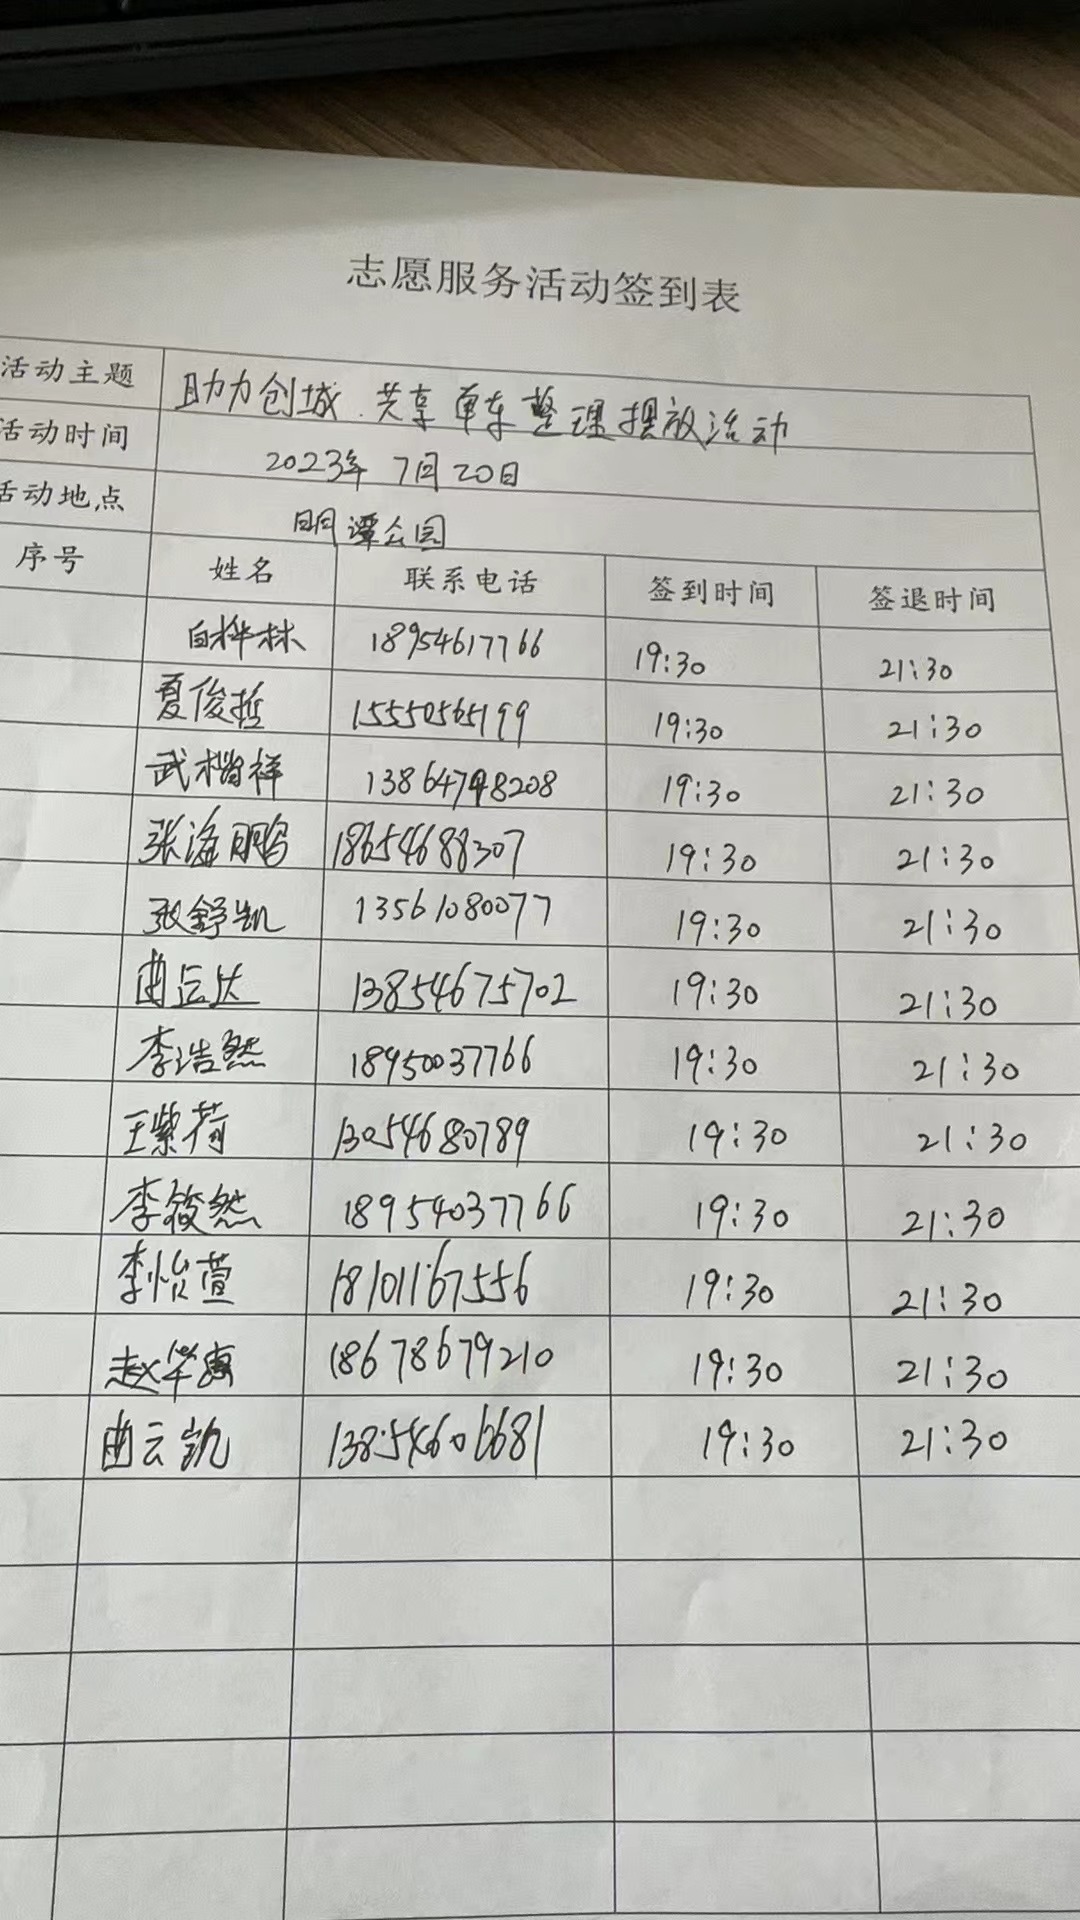 志愿服务活动签到表
活动主题 助力创城.共享单车整理摆放活动
活动时间 2023年7月20日
活动地点 明潭公园
序号 姓名 联系电话 签到时间 签退时间
白桦林 18954617766 19:30 21:30
夏俊哲 15550565199 19:30 21:30
武楷祥 13864798208 19:30 21:30
张洺鹏 18654688307 19:30 21:30
张舒凯 13561080077 19:30 21:30
曲云达 13854675702 19:30 21:30
李浩然 18950037766 19:30 21:30
王紫荷 13054680789 19:30 21:30
李筱然 18954037766 19:30 21:30
李怡萱 18101167556 19:30 21:30
赵华惠 18678679210 19:30 21:30
曲云凯 19:30 21:30